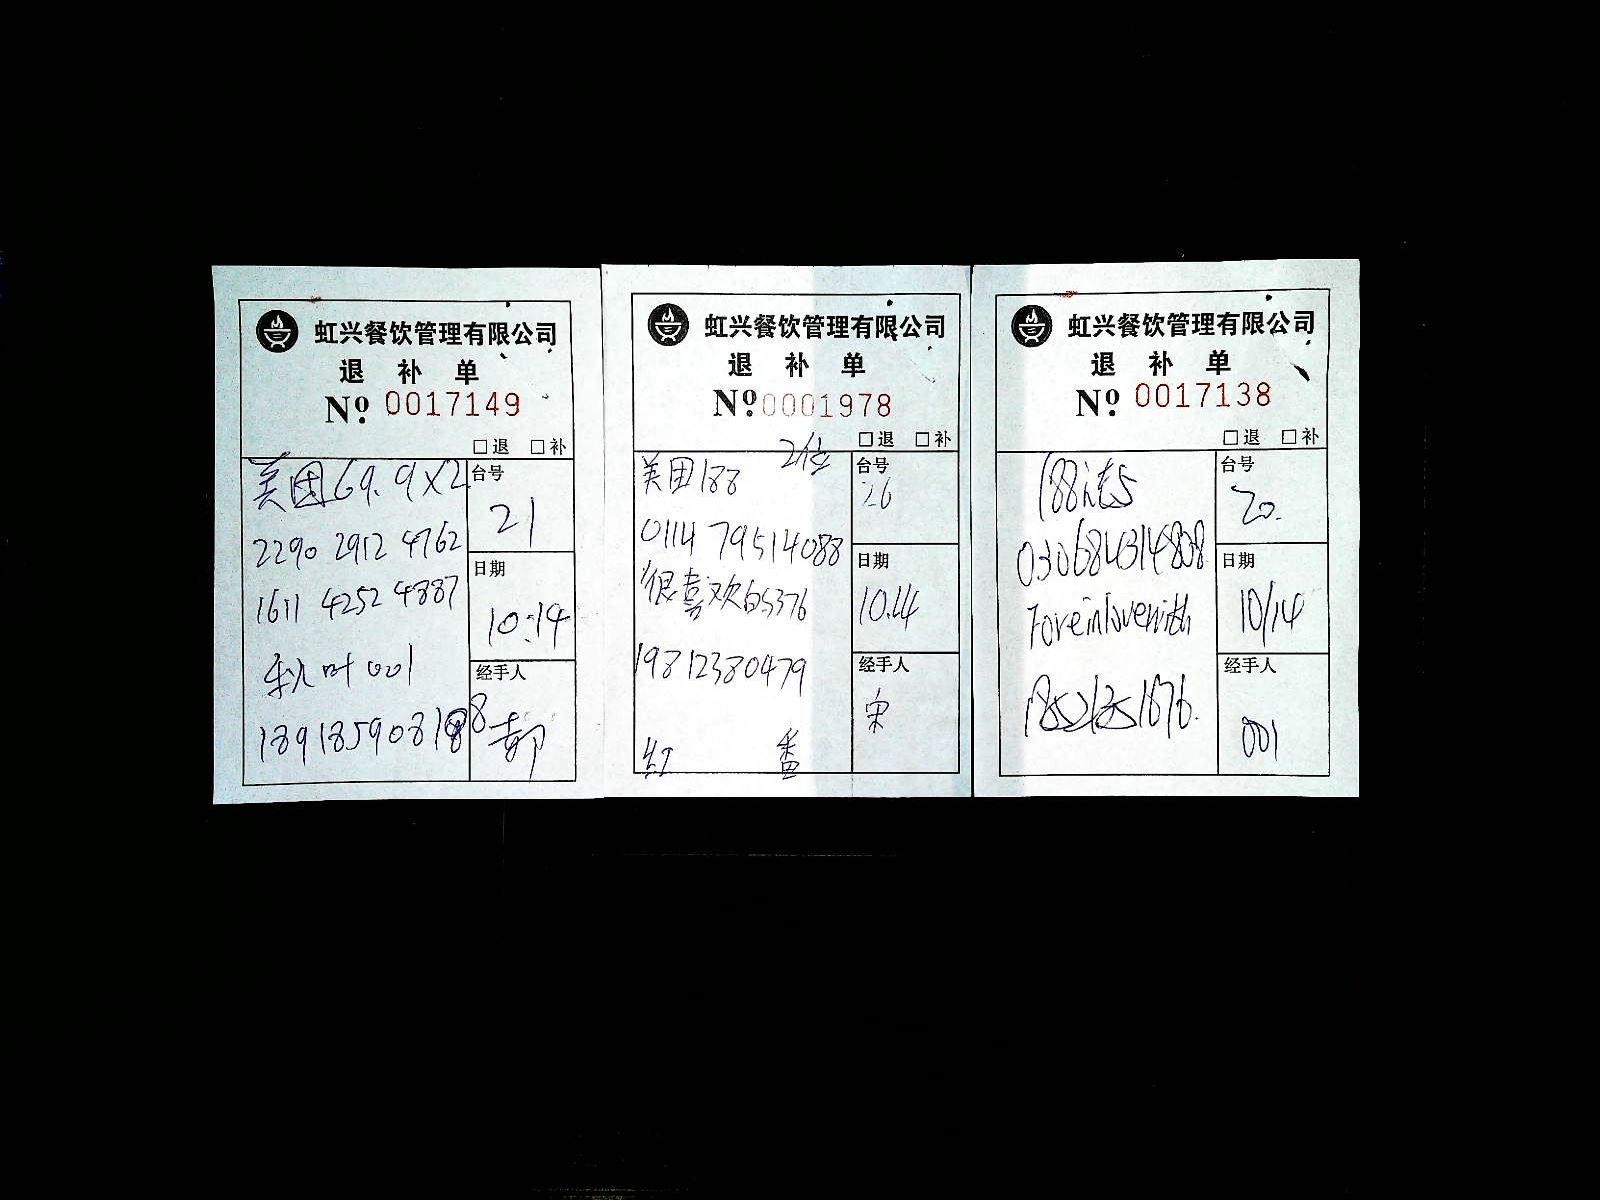 虹兴餐饮管理有限公司
退 补 单
Nº 0017149
□退 □补
美团69.9×2
2290 2912 4762
1611 4252 4887
秋叶001
台号
21
日期
10:14
经手人
郝
虹兴餐饮管理有限公司
退 补 单
Nº 0001978
□退 □补
2位
美团188
0114 79514088
很喜欢的5376
19812380479
红 番
台号
26
日期
10.14
经手人
宋
虹兴餐饮管理有限公司
退 补 单
Nº 0017138
□退 □补
030684314808
Foreinlovewith
台号
20.
日期
10/14
经手人
001